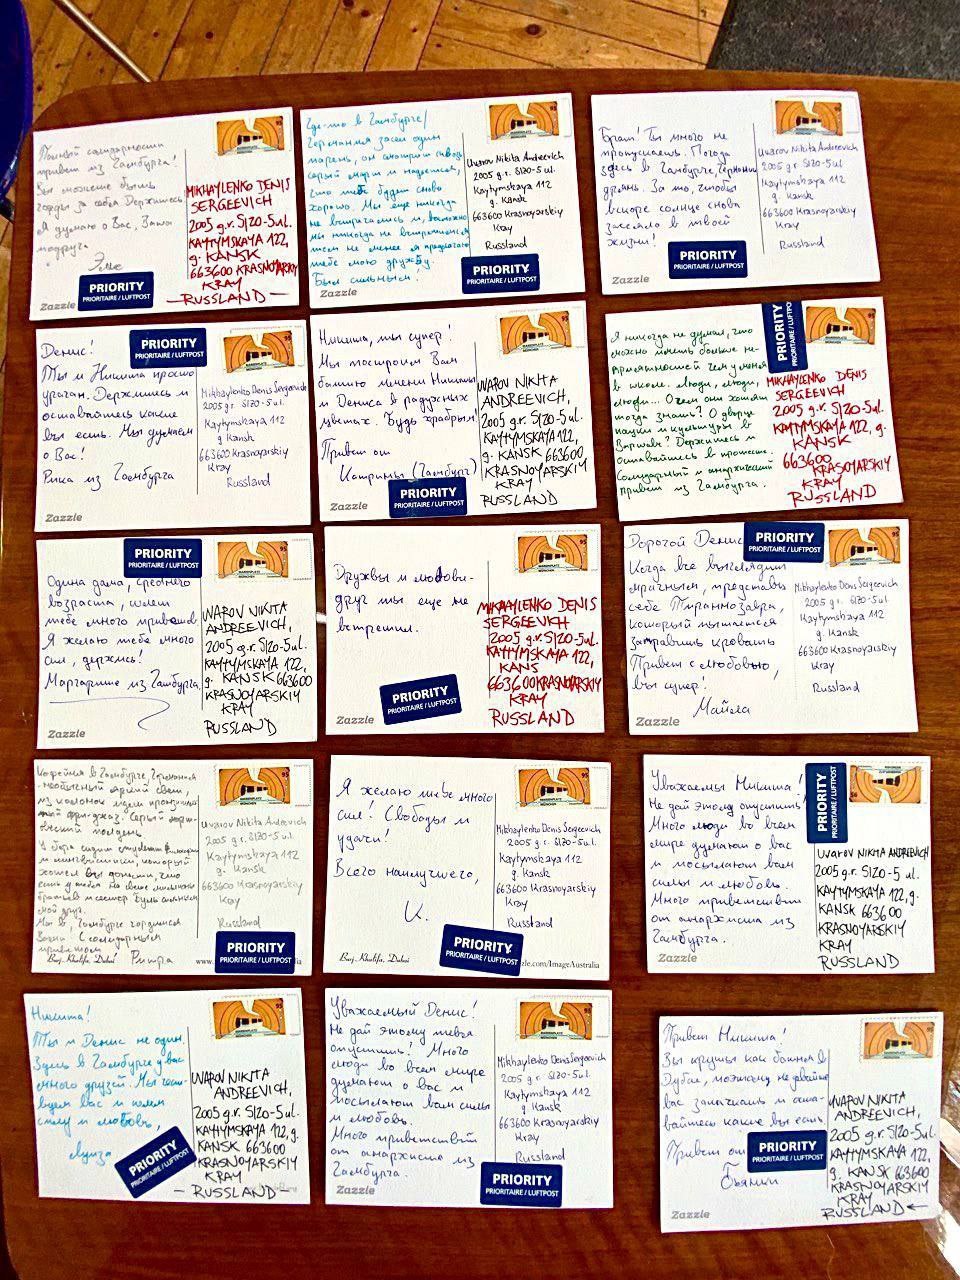 Полный солидарности
привет из Гамбурга!
Вы можете быть
горды за себя. Держитесь.
Я думаю о Вас, Ваша
подруга
Эме
MIKHAYLENKO DENIS
SERGEEVICH
2005 g.r. SIZO-5 ul.
KAYTYMSKAYA 122,
g. KANSK
663600 KRASNOYARSKIY
KRAY
— RUSSLAND —
PRIORITY
PRIORITAIRE / LUFTPOST
Zazzle
Где-то в Гамбурге/
Германия засел один
парень, он смотрит сквозь
серый март и надеется,
что тебе будет снова
хорошо. Мы еще никогда
не встречались и, возможно
мы никогда не встретимся
тем не менее я предлагаю
тебе мою дружбу.
Будь сильным!
Uvarov Nikita Andreevich
2005 g.r. SIZO-5 ul.
Kaytymskaya 112
g. Kansk
663600 Krasnoyarskiy
Kray
Russland
PRIORITY
PRIORITAIRE / LUFTPOST
Zazzle
Брат! Ты много не
пропускаешь. Погода
здесь в Гамбурге, Германии
дрянь. За то, чтобы
вскоре солнце снова
засеяло в твоей
жизни!
Uvarov Nikita Andreevich
2005 g.r. SIZO-5 ul.
Kaytymskaya 112
g. Kansk
663600 Krasnoyarskiy
Kray
Russland
PRIORITY
PRIORITAIRE / LUFTPOST
Zazzle
Денис!
Ты и Никита просто
ураган. Держитесь и
оставайтесь какие
вы есть. Мы думаем
о Вас!
Рика из Гамбурга
PRIORITY
PRIORITAIRE / LUFTPOST
Mikhaylenko Denis Sergeevich
2005 g.r. SIZO-5 ul.
Kaytymskaya 112
g. Kansk
663600 Krasnoyarskiy
Kray
Russland
Zazzle
Никита, ты супер!
Мы построим Вам
башню имени Никиты
и Дениса в радужных
цветах. Будь храбрым!
Привет от
Катрины (Гамбург)
UVAROV NIKITA
ANDREEVICH,
2005 g.r. SIZO-5 ul.
KAYTYMSKAYA 122,
g. KANSK 663600
KRASNOYARSKIY
KRAY
RUSSLAND
PRIORITY
PRIORITAIRE / LUFTPOST
Zazzle
Я никогда не думал, что
можно иметь больше не-
приятностей чем у меня
в школе. Люди, люди,
люди... О чем они хотят
тогда знать? О дворце
науки и культуры в
Варшаве? Держитесь и
оставайтесь в протесте.
Солидарный и анархический
привет из Гамбурга.
PRIORITY
PRIORITAIRE / LUFTPOST
MIKHAYLENKO DENIS
SERGEEVICH
2005 g.r. SIZO-5 ul.
KAYTYMSKAYA 122, g.
KANSK
663600
KRASNOYARSKIY
KRAY
RUSSLAND
Zazzle
Одина дама, среднего
возраста, шлет
тебе много приветов.
Я желаю тебе много
сил, держись!
Маргарите из Гамбурга.
PRIORITY
PRIORITAIRE / LUFTPOST
UVAROV NIKITA
ANDREEVICH,
2005 g.r. SIZO-5 ul.
KAYTYMSKAYA 122,
g. KANSK 663600
KRASNOYARSKIY
KRAY
RUSSLAND
Zazzle
Дружбы и любови-
друг мы еще не
встретили.
MIKHAYLENKO DENIS
SERGEEVICH
2005 g.r. SIZO-5 ul.
KAYTYMSKAYA 122,
KANS
663600 KRASNOYARSKIY
KRAY
RUSSLAND
PRIORITY
PRIORITAIRE / LUFTPOST
Zazzle
Дорогой Денис
Когда все выглядит
мрачным, представь
себе Тираннозавра,
который пытается
заправить кровать
Привет с любовью,
вы супер!
Майла
PRIORITY
PRIORITAIRE / LUFTPOST
Mikhaylenko Denis Sergeevich
2005 g.r. SIZO-5 ul.
Kaytymskaya 112
g. Kansk
663600 Krasnoyarskiy
Kray
Russland
Zazzle
Кофейня в Гамбурге, Германия
необычный яркий свет,
из колонок
фриджаз. Серый мар-
товский полдень.
У бара сидит студент философии
и лингвистики, который
хотел бы
есть у тебя на свете миллионы
братьев и сестер. Будь сильным
мой друг.
Мы в Гамбурге гордимся
Вами. С солидарным
приветом
Ритра
Uvarov Nikita Andreevich
2005 g.r. SIZO-5 ul.
Kaytymskaya 112
g. Kansk
663600 Krasnoyarskiy
Kray
Russland
PRIORITY
PRIORITAIRE / LUFTPOST
Burj Khalifa, Dubai
www.
Я желаю тебе много
сил! Свободы и
удачи!
Всего наилучшего,
К.
Mikhaylenko Denis Sergeevich
2005 g.r. SIZO-5 ul.
Kaytymskaya 112
g. Kansk
663600 Krasnoyarskiy
Kray
Russland
PRIORITY
PRIORITAIRE / LUFTPOST
Burj Khalifa, Dubai
zzle.com/ImageAustralia
Уважаемы Никита!
Не дай этому опустить!
Много люди во всем
мире думают о вас
и посылают вам
силы и любовь.
Много приветствий
от анархиста из
Гамбурга.
PRIORITY
PRIORITAIRE / LUFTPOST
UVAROV NIKITA ANDREEVICH
2005 g.r. SIZO-5 ul.
KAYTYMSKAYA 122, g.
KANSK 663600
KRASNOYARSKIY
KRAY
RUSSLAND
Zazzle
Никита!
Ты и Денис не один.
Здесь в Гамбурге у вас
много друзей. Мы
вас и шлем
силу и любовь,
Луиза
UVAROV NIKITA
ANDREEVICH,
2005 g.r. SIZO-5 ul.
KAYTYMSKAYA 122, g.
KANSK 663600
KRASNOYARSKIY
KRAY
— RUSSLAND —
PRIORITY
PRIORITAIRE / LUFTPOST
Уважаемый Денис!
Не дай этому тебя
опустить! Много
люди во всем мире
думают о вас и
посылают вам силы
и любовь.
Много приветствий
от анархиста из
Гамбурга.
Mikhaylenko Denis Sergeevich
2005 g.r. SIZO-5 ul.
Kaytymskaya 112
g. Kansk
663600 Krasnoyarskiy
Kray
Russland
PRIORITY
PRIORITAIRE / LUFTPOST
Zazzle
Привет Никита!
Вы круты как башня в
Дубае, поэтому не давайте
вас запугать и оста-
вайтесь какие вы есть
Привет от
Бьянки
UVAROV NIKITA
ANDREEVICH,
2005 g.r. SIZO-5 ul.
KAYTYMSKAYA 122,
g. KANSK 663600
KRASNOYARSKIY
KRAY
RUSSLAND ←
PRIORITY
PRIORITAIRE / LUFTPOST
Zazzle